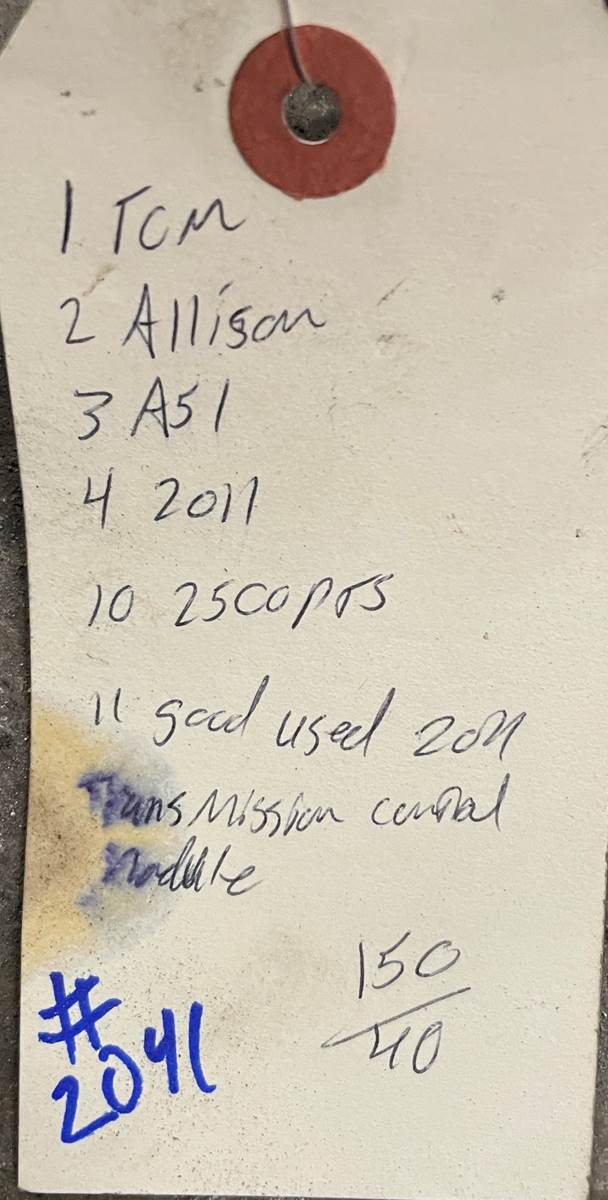 1 TCM
2 Allison
3 A51
4 2011
10 2500 PTS
11 good used 2011
Transmission control
Module
150
40
#
2041